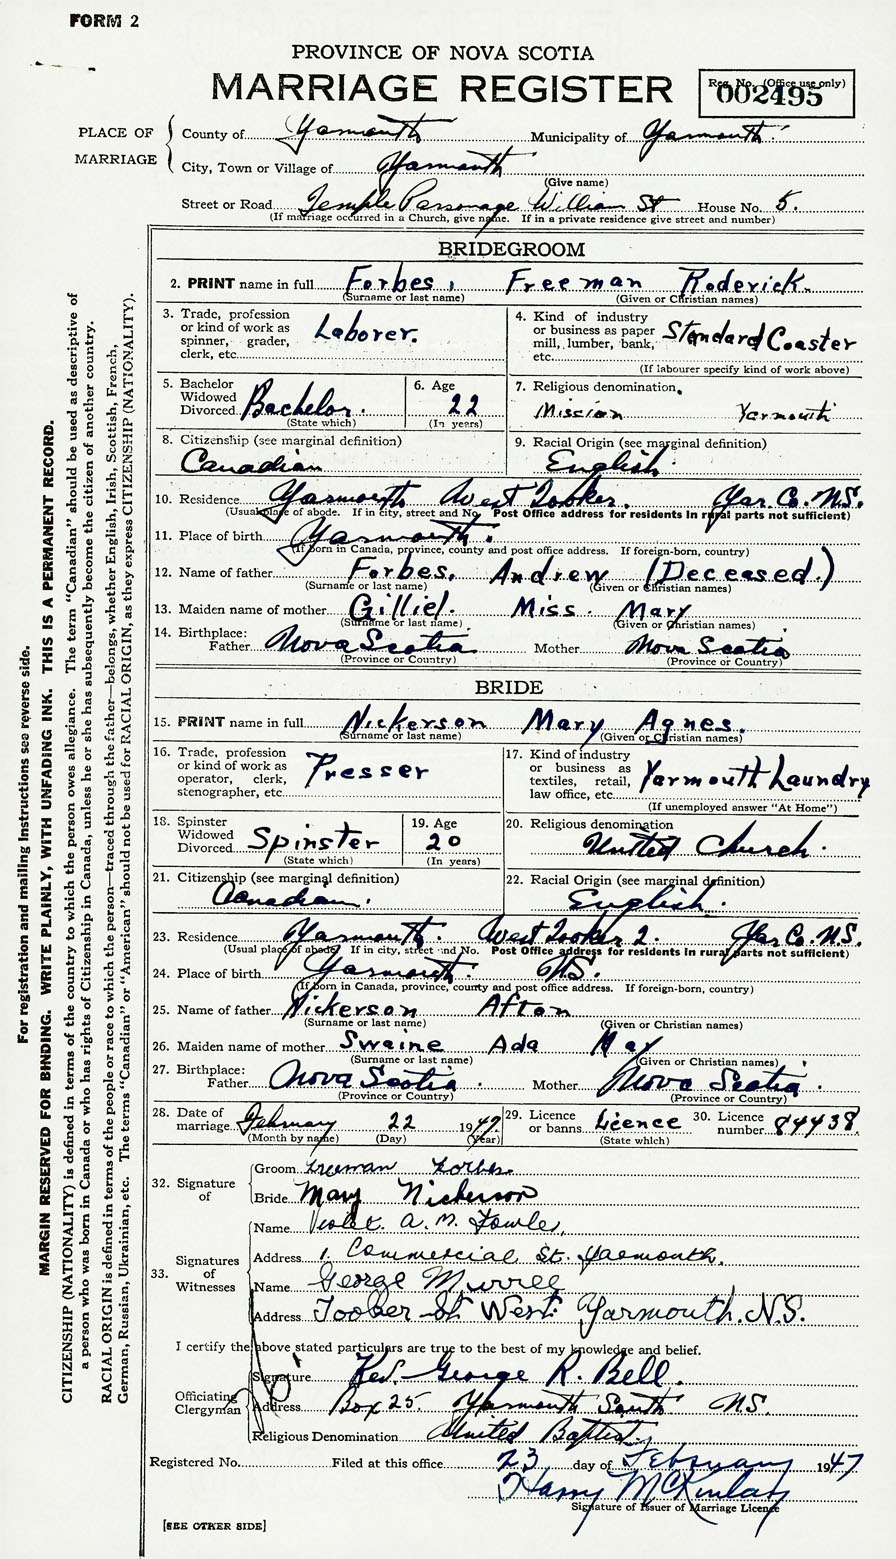 FORM 2
PROVINCE OF NOVA SCOTIA
MARRIAGE REGISTER
Reg. No. (Office use only)
002495
PLACE OF MARRIAGE
County of Yarmouth Municipality of Yarmouth
City, Town or Village of Yarmouth
(Give name)
Street or Road Temple Parsonage William St House No. 5.
(If marriage occurred in a Church, give name. If in a private residence give street and number)
BRIDEGROOM
2. PRINT name in full Forbes, Freeman Roderick.
(Surname or last name) (Given or Christian names)
3. Trade, profession or kind of work as spinner, grader, clerk, etc. Laborer.
4. Kind of industry or business as paper mill, lumber, bank, etc. Standard Coaster
(If labourer specify kind of work above)
5. Bachelor Widowed Divorced Bachelor.
(State which)
6. Age 22
(In years)
7. Religious denomination. Mission Yarmouth
8. Citizenship (see marginal definition) Canadian
9. Racial Origin (see marginal definition) English.
10. Residence Yarmouth West Tooker. Yar. Co. N.S.
(Usual place of abode. If in city, street and No. Post Office address for residents in rural parts not sufficient)
11. Place of birth Yarmouth.
(If born in Canada, province, county and post office address. If foreign-born, country)
12. Name of father Forbes, Andrew (Deceased.)
(Surname or last name) (Given or Christian names)
13. Maiden name of mother Miss. Mary
(Surname or last name) (Given or Christian names)
14. Birthplace: Father Nova Scotia Mother Nova Scotia
(Province or Country) (Province or Country)
BRIDE
15. PRINT name in full Nickerson Mary Agnes.
(Surname or last name) (Given or Christian names)
16. Trade, profession or kind of work as operator, clerk, stenographer, etc. Presser
17. Kind of industry or business as textiles, retail, law office, etc. Yarmouth Laundry
(If unemployed answer "At Home")
18. Spinster Widowed Divorced Spinster
(State which)
19. Age 20
(In years)
20. Religious denomination United Church.
21. Citizenship (see marginal definition) Canadian.
22. Racial Origin (see marginal definition) English.
23. Residence Yarmouth. West Tooker 2. Yar. Co. N.S.
(Usual place of abode? If in city, street and No. Post Office address for residents in rural parts not sufficient)
24. Place of birth Yarmouth. N.S.
(If born in Canada, province, county and post office address. If foreign-born, country)
25. Name of father Nickerson Afton
(Surname or last name) (Given or Christian names)
26. Maiden name of mother Swaine Ada May
(Surname or last name) (Given or Christian names)
27. Birthplace: Father Nova Scotia. Mother Nova Scotia.
(Province or Country) (Province or Country)
28. Date of marriage February 22 1947
(Month by name) (Day) (Year)
29. Licence or banns Licence
(State which)
30. Licence number 84438.
32. Signature of
Groom Freeman Forbes
Bride Mary Nickerson
33. Signatures of Witnesses
Name Violet. A. M. Fowler,
Address 1. Commercial St. Yarmouth.
Name George Murree
Address Tooker St West Yarmouth. N.S.
I certify the above stated particulars are true to the best of my knowledge and belief.
Officiating Clergyman
Signature Rev. George R. Bell.
Address Box 25. Yarmouth South NS.
Religious Denomination United Baptist
Registered No. Filed at this office 23 day of February 1947
Harry McKinlay
Signature of Issuer of Marriage Licence
[SEE OTHER SIDE]
For registration and mailing instructions see reverse side.
MARGIN RESERVED FOR BINDING. WRITE PLAINLY, WITH UNFADING INK. THIS IS A PERMANENT RECORD.
CITIZENSHIP (NATIONALITY) is defined in terms of the country to which the person owes allegiance. The term "Canadian" should be used as descriptive of
a person who was born in Canada or who has rights of Citizenship in Canada, unless he or she has subsequently become the citizen of another country.
RACIAL ORIGIN is defined in terms of the people or race to which the person—traced through the father—belongs, whether English, Irish, Scottish, French,
German, Russian, Ukrainian, etc. The terms "Canadian" or "American" should not be used for RACIAL ORIGIN, as they express CITIZENSHIP (NATIONALITY).